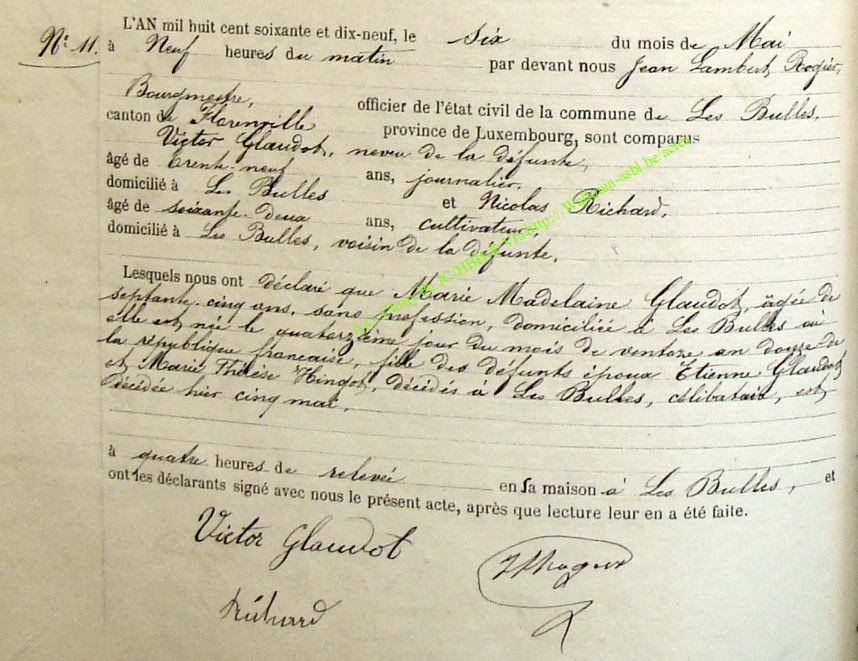 N° 11.
L'AN mil huit cent soixante et dix-neuf, le six du mois de Mai
à Neuf heures du matin par devant nous Jean Lambert Rogier,
Bourgmestre, officier de l'état civil de la commune de Les Bulles,
canton de Florenville province de Luxembourg, sont comparus
Victor Glaudot, neveu de la défunte,
âgé de trente-neuf ans, journalier,
domicilié à Les Bulles et Nicolas Richard,
âgé de soixante-deux ans, cultivateur,
domicilié à Les Bulles, voisin de la défunte,
Lesquels nous ont déclaré que Marie Madelaine Glaudot, âgée de
septante-cinq ans, sans profession, domiciliée à Les Bulles où
elle est née le quatorzième jour du mois de ventoze an douze de
la république française, fille des défunts époux Etienne Glaudot
et Marie Thérèse Hingot, décédés à Les Bulles, célibataire, est
décédée hier cinq mai,
à quatre heures de relevée en sa maison à Les Bulles, et
ont les déclarants signé avec nous le présent acte, après que lecture leur en a été faite.
Victor Glaudot
Richard